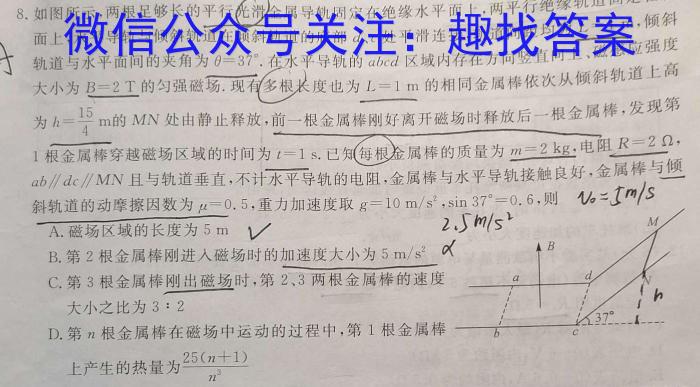 8.如图所示,两根足够长的平行光滑金属导轨固定在绝缘水平面上,两平行绝缘轨道固定在
面上
微信公众号关注：趣找答案
倾斜
轨道与水平面间的夹角为θ=37°.在水平导轨的abcd区域内存在方向竖直向上、磁感应强度
大小为B=2 T的匀强磁场.现有多根长度也为L=1 m的相同金属棒依次从倾斜轨道上高
为h=15/4 m的MN处由静止释放,前一根金属棒刚好离开磁场时释放后一根金属棒,发现第
1根金属棒穿越磁场区域的时间为t=1 s.已知每根金属棒的质量为m=2 kg,电阻R=2 Ω,
ab∥dc∥MN且与轨道垂直,不计水平导轨的电阻,金属棒与水平导轨接触良好,金属棒与倾
斜轨道的动摩擦因数为μ=0.5,重力加速度取g=10 m/s²,sin 37°=0.6,则 v₀=5m/s
A.磁场区域的长度为5 m
2.5m/s²
B.第2根金属棒刚进入磁场时的加速度大小为5 m/s²
C.第3根金属棒刚出磁场时,第2、3两根金属棒的速度
大小之比为3∶2
D.第n根金属棒在磁场中运动的过程中,第1根金属棒
上产生的热量为25(n+1)/n³
M
B
a
d
N
h
37°
b
c